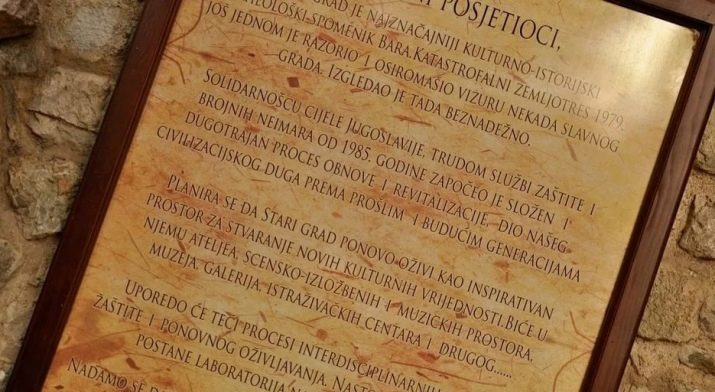 POSJETIOCI,
GRAD JE NAJZNAČAJNIJI KULTURNO-ISTORIJSKI
SPOMENIK BARA. KATASTROFALNI ZEMLJOTRES 1979.
JOŠ JEDNOM JE RAZORIO I OSIROMAŠIO VIZURU NEKADA SLAVNOG
GRADA, IZGLEDAO JE TADA BEZNADEŽNO.
SOLIDARNOŠĆU CIJELE JUGOSLAVIJE, TRUDOM SLUŽBI ZAŠTITE I
BROJNIH NEIMARA OD 1985. GODINE ZAPOČEO JE SLOŽEN I
DUGOTRAJAN PROCES OBNOVE I REVITALIZACIJE, DIO NAŠEG
CIVILIZACIJSKOG DUGA PREMA PROŠLIM I BUDUĆIM GENERACIJAMA
PLANIRA SE DA STARI GRAD PONOVO OŽIVI KAO INSPIRATIVAN
PROSTOR ZA STVARANJE NOVIH KULTURNIH VRIJEDNOSTI. BIĆE U
NJEMU ATELJEA, SCENSKO-IZLOŽBENIH I MUZIČKIH PROSTORA,
MUZEJA, GALERIJA, ISTRAŽIVAČKIH CENTARA I DRUGOG......
UPOREDO ĆE TEĆI PROCESI INTERDISCIPLINARNIH
ZAŠTITE I PONOVNOG OŽIVLJAVANJA.
POSTANE LABORATORIJA
NADAMO SE DA